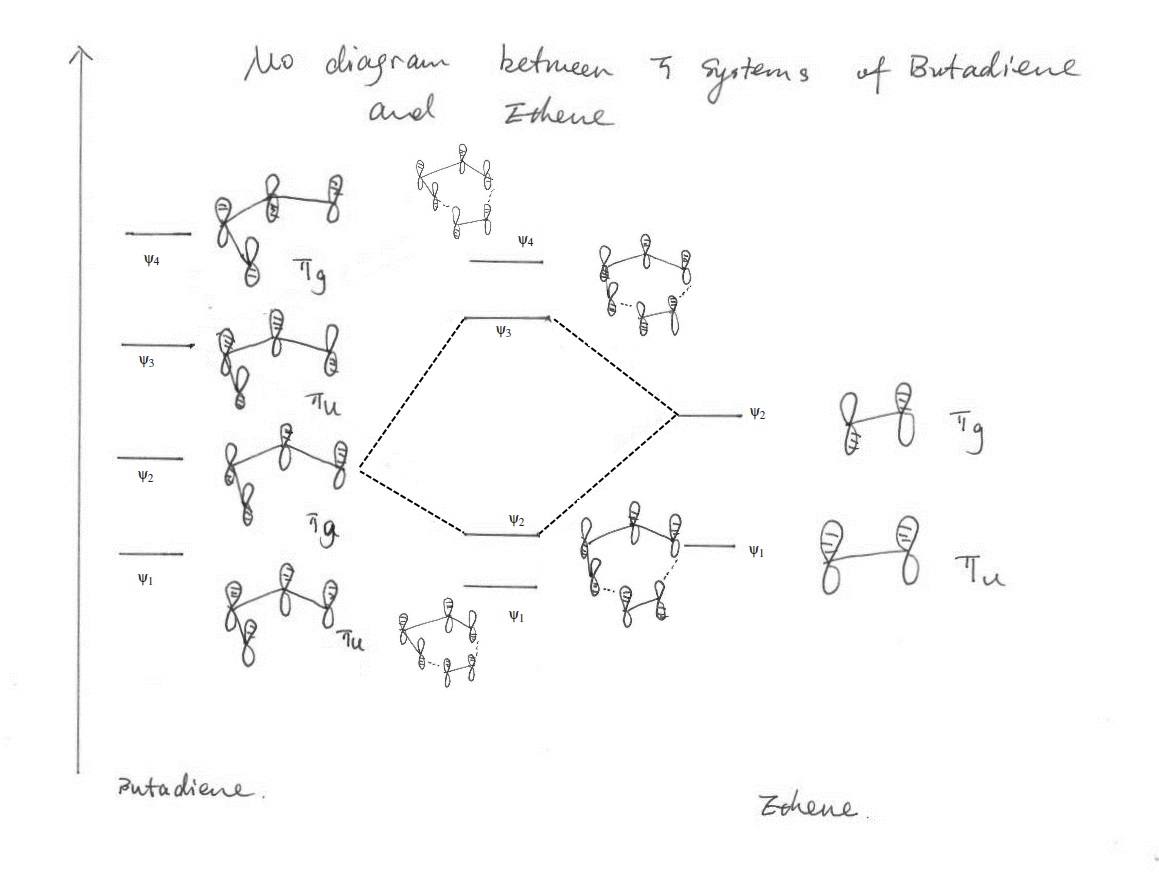 MO diagram between π systems of Butadiene
and Ethene
ψ4
πg
ψ4
ψ3
πu
ψ3
ψ2
πg
ψ2
πg
ψ2
ψ1
πu
ψ1
ψ1
πu
Butadiene.
Ethene.